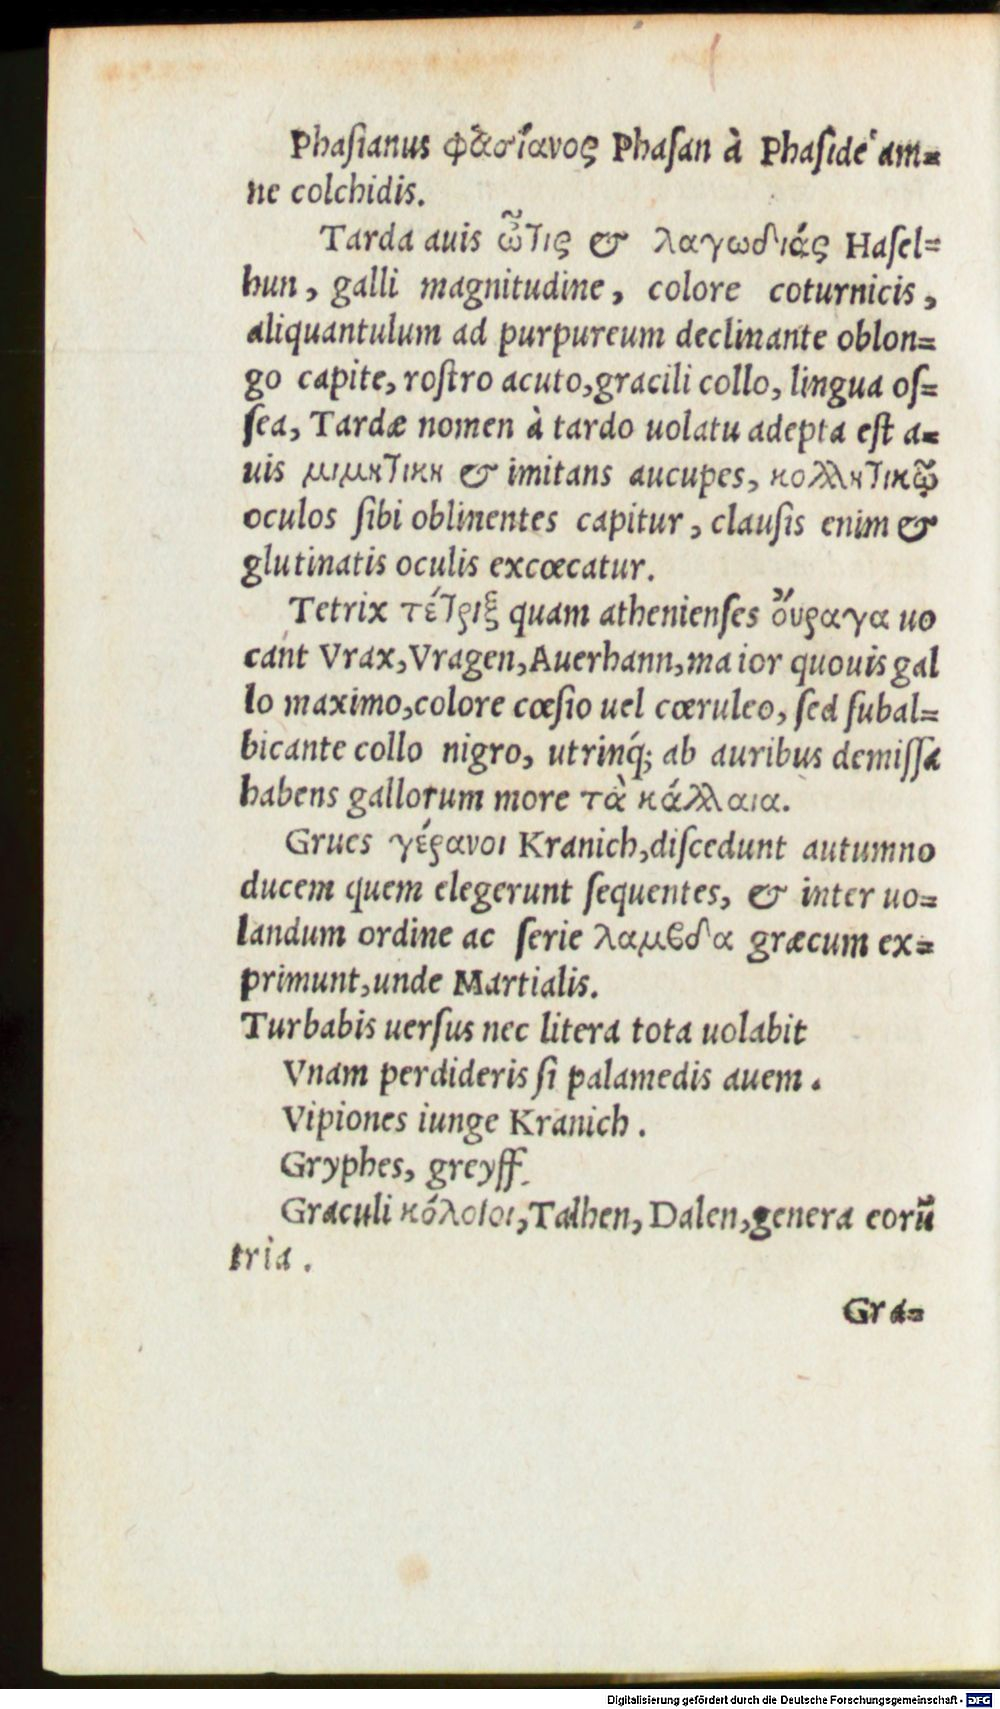 Phaſianus φὰσίανος Phaſan à Phaſide am=
ne colchidis.
Tarda auis ὦτις & λαγωδιάς Haſel=
hun, galli magnitudine, colore coturnicis,
aliquantulum ad purpureum declinante oblon=
go capite, roſtro acuto, gracili collo, lingua oſ=
ſea, Tardæ nomen à tardo uolatu adepta eſt a=
uis μιμητικη & imitans aucupes, κολλητικῷ
oculos ſibi oblinentes capitur, clauſis enim &
glutinatis oculis excœcatur.
Tetrix τέτριξ quam athenienſes ὄυραγα uo
cant Vrax, Vragen, Auerhann, maior quouis gal
lo maximo, colore cœſio uel cœruleo, ſed ſubal=
bicante collo nigro, utrinq́; ab auribus demiſſa
habens gallorum more τὰ κάλλαια.
Grues γέρανοι Kranich, diſcedunt autumno
ducem quem elegerunt ſequentes, & inter uo=
landum ordine ac ſerie λαμβδα græcum ex=
primunt, unde Martialis.
Turbabis uerſus nec litera tota uolabit
Vnam perdideris ſi palamedis auem.
Vipiones iunge Kranich.
Gryphes, greyff.
Graculi κόλοιοι, Talhen, Dalen, genera eorũ
tria.
Gra=
Digitalisierung gefördert durch die Deutsche Forschungsgemeinschaft - DFG